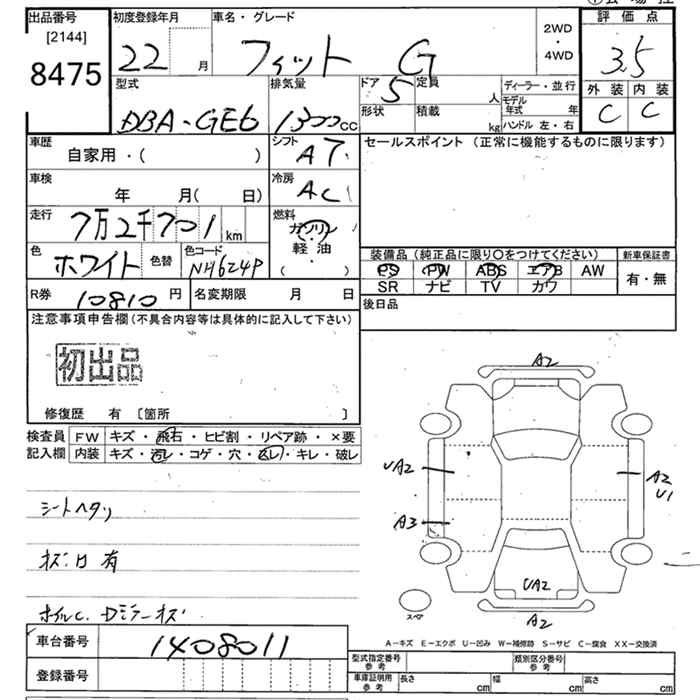 出品番号 初度登録年月 車名・グレード 評価点
[2144] 2WD
8475 22 月 フィット G ・ 3.5
4WD
型式 排気量 ドア 5 定員 人 ディーラー・並行 外装 内装
DBA-GE6 1300cc 形状 積載 kg モデル年式 年 C C
ハンドル 左・右
車歴 自家用・( ) シフト AT セールスポイント (正常に機能するものに限ります)
車検 年 月( 日) 冷房 AC
走行 7万2千701 km 燃料 ガソリン
軽油
( ・ )
色 ホワイト 色替 色コード NH624P 装備品 (純正品に限り○をつけてください) 新車保証書
PS PW ABS エアB AW 有・無
SR ナビ TV カワ
R券 10810 円 名変期限 月 日 後日品
注意事項申告欄(不具合内容等は具体的に記入して下さい)
初出品
修復歴 有 [箇所 ]
検査員 FW キズ・飛石・ヒビ割・リペア跡・×要
記入欄 内装 キズ・汚レ・コゲ・穴・スレ・キレ・破レ
A2
UA2 A2
U1
A3
シートヘタリ
UA2
スペア
A2
A-キズ E-エクボ U-凹み W-補修跡 S-サビ C-腐食 XX-交換済
車台番号 1408011
登録番号
型式指定番号 参考 類別区分番号 参考
車庫証明用 参考 長さ cm 幅 cm 高さ cm